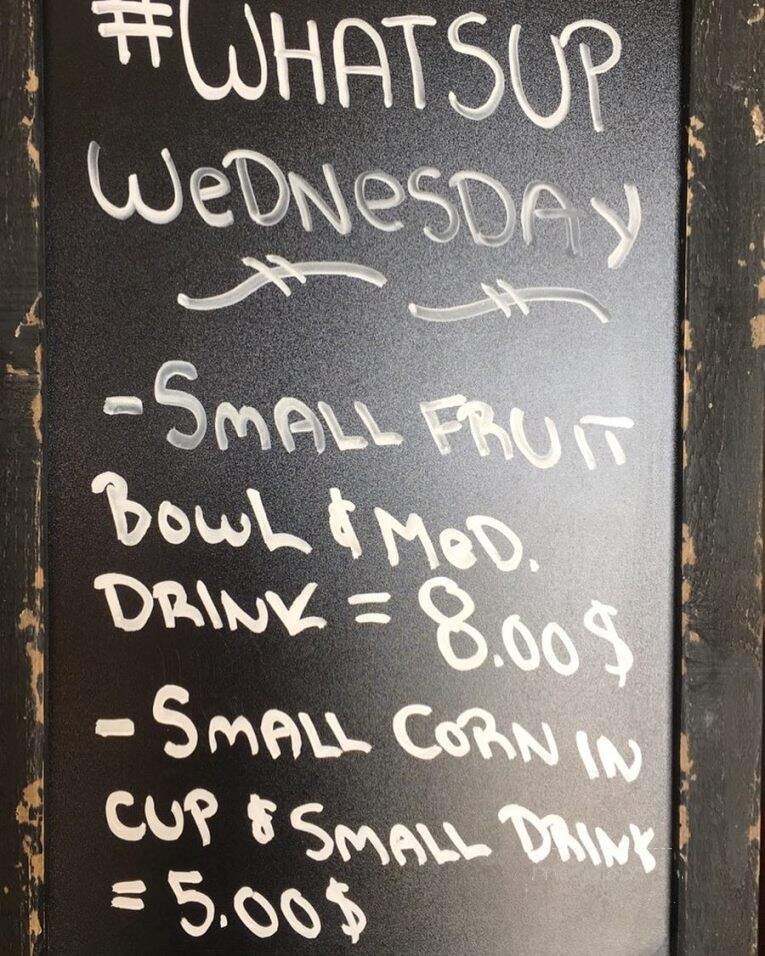 #WHATSUP
WeDNeSDAY
-SMALL FRUIT
BOWL & MeD.
DRINK = 8.00$
-SMALL CORN IN
CUP & SMALL DRINK
= 5.00$